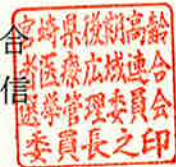 合
信
宮崎県後期高齢
者医療広域連合
選挙管理委員会
委員長之印